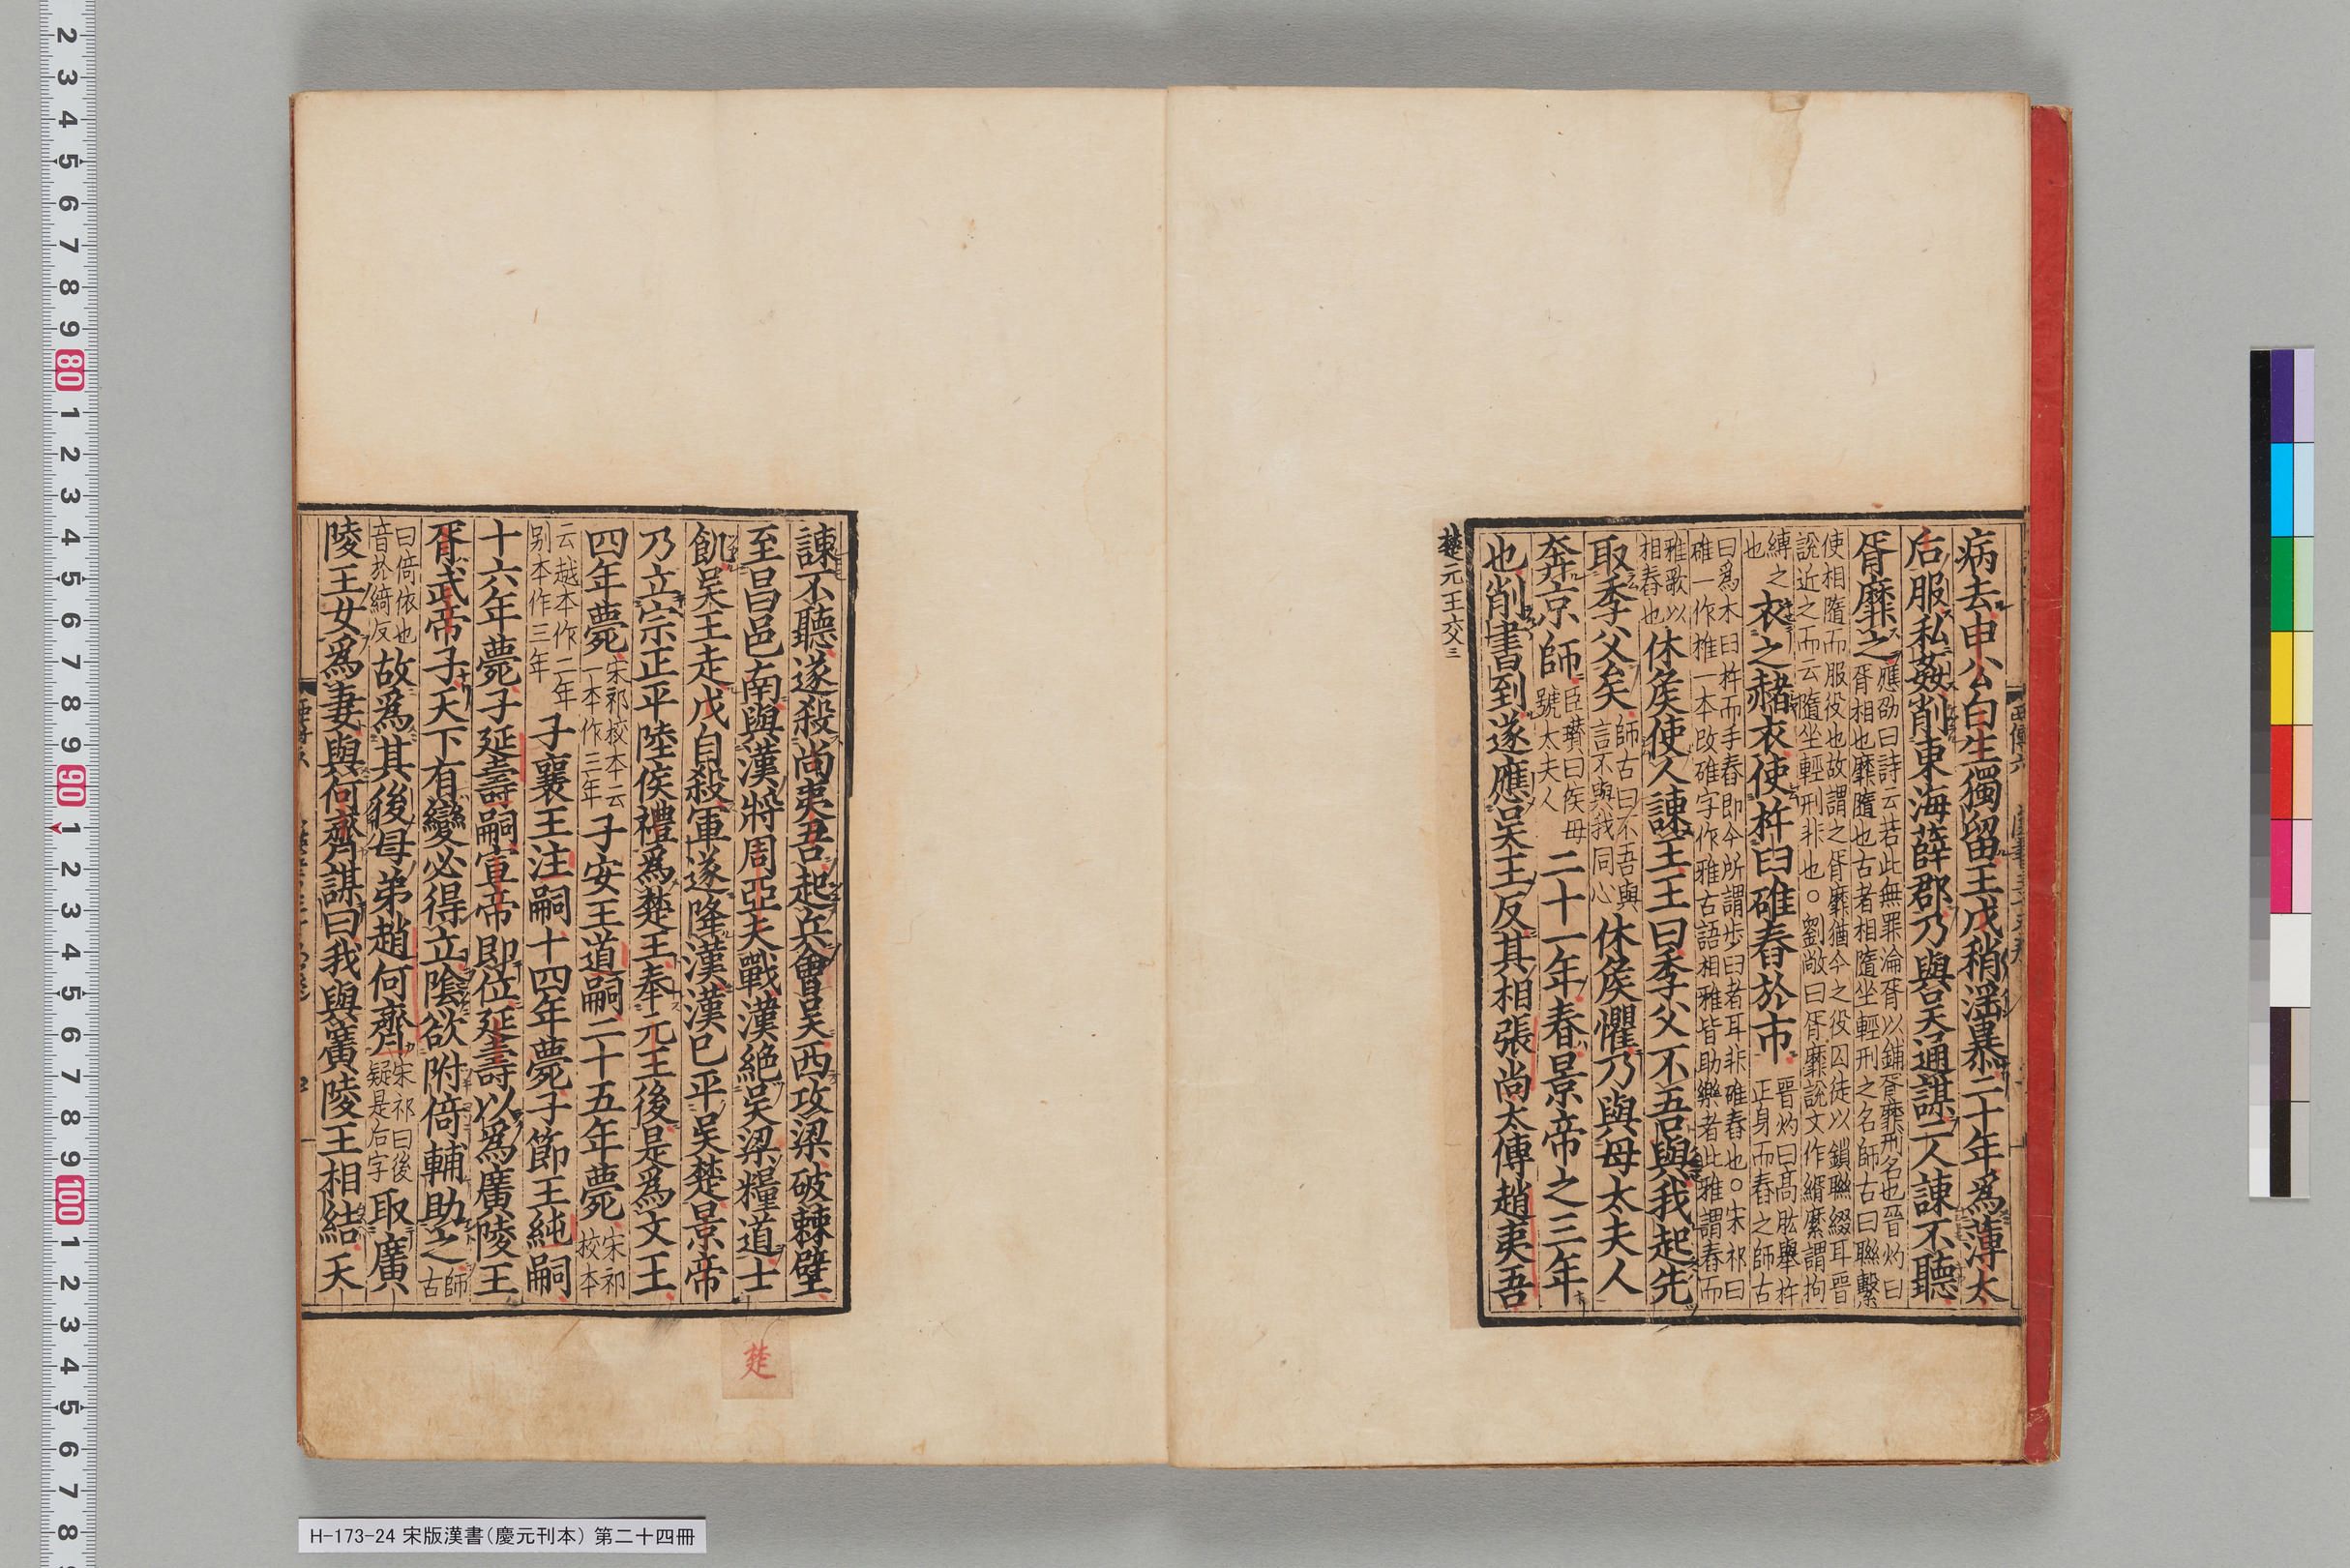 病去申公白生獨留王戊稍淫暴二十年爲薄太
后服私姦削東海薛郡乃與吳通謀二人諫不聽
胥靡之應劭曰詩云若此無罪淪胥以鋪胥靡刑名也晉灼曰
胥相也靡隨也古者相隨坐輕刑之名師古曰聯繫
使相隨而服役也故謂之胥靡猶今之役囚徒以鎖聯綴耳晉
說近之而云隨坐輕刑非也○劉敞曰胥靡說文作縃縻謂拘
縛之
也
衣之赭衣使杵臼碓舂於市晉灼曰高肱舉杵
正身而舂之師古
曰爲木臼杵而手舂即今所謂步臼者耳非碓舂也○宋祁曰
碓一作椎一本改碓字作雅古語相雅皆助樂者此雅謂舂而
雅歌以
相舂也
休侯使人諫王王曰季父不吾與我起先
取季父矣師古曰不吾與
言不與我同心
休侯懼乃與母太夫人
奔京師臣瓚曰侯母
號太夫人
二十一年春景帝之三年
也削書到遂應吳王反其相張尚太傅趙夷吾
楚元王交三
諫不聽遂殺尚夷吾起兵會吳西攻梁破棘壁
至昌邑南與漢將周亞夫戰漢絕吳梁糧道士
飢吳王走戊自殺軍遂降漢漢已平吳楚景帝
乃立宗正平陸侯禮爲楚王奉元王後是爲文王
四年薨宋祁校本云
一本作三年
子安王道嗣二十五年薨宋祁
校本
云越本作二年
別本作三年
子襄王注嗣十四年薨子節王純嗣
十六年薨子延壽嗣宣帝即位延壽以爲廣陵王
胥武帝子天下有變必得立陰欲附倚輔助之師
古
曰倚依也
音於綺反
故爲其後母弟趙何齊宋祁曰後
疑是右字
取廣
陵王女爲妻與何齊謀曰我與廣陵王相結天
楚
H-173-24 宋版漢書(慶元刊本) 第二十四冊